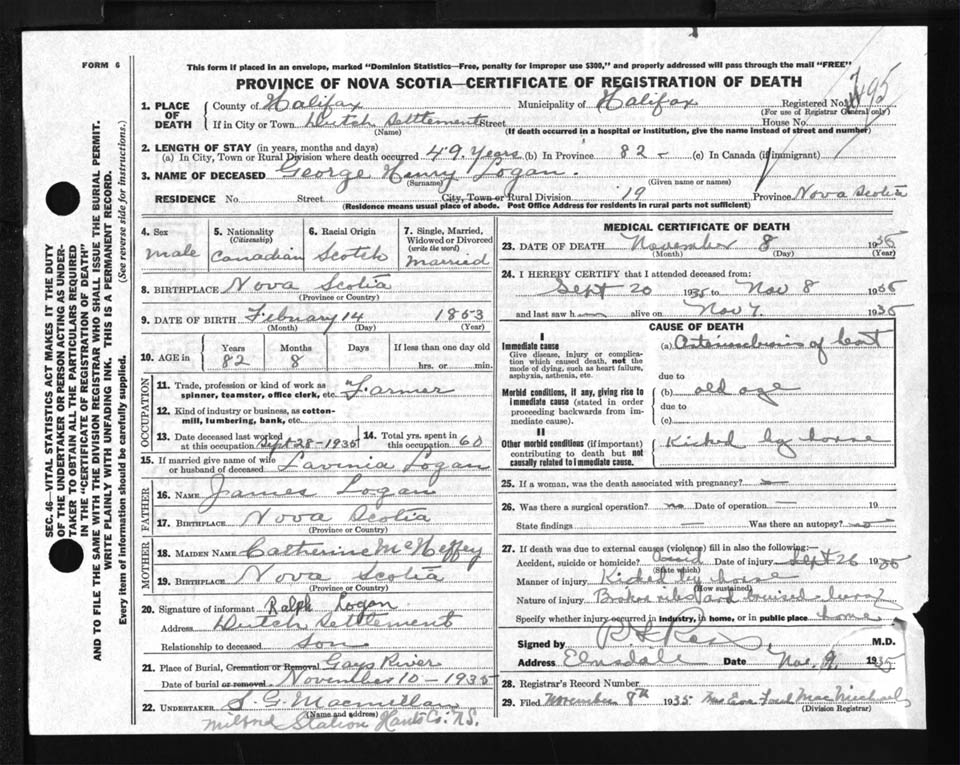 FORM 6
This form if placed in an envelope, marked "Dominion Statistics—Free, penalty for improper use $300," and properly addressed will pass through the mail "FREE"
PROVINCE OF NOVA SCOTIA—CERTIFICATE OF REGISTRATION OF DEATH
SEC. 46—VITAL STATISTICS ACT MAKES IT THE DUTY
OF THE UNDERTAKER OR PERSON ACTING AS UNDER-
TAKER TO OBTAIN ALL THE PARTICULARS REQUIRED
IN THE "CERTIFICATE OF REGISTRATION OF DEATH"
AND TO FILE THE SAME WITH THE DIVISION REGISTRAR WHO SHALL ISSUE THE BURIAL PERMIT.
WRITE PLAINLY WITH UNFADING INK. THIS IS A PERMANENT RECORD.
Every item of information should be carefully supplied. (See reverse side for instructions.)
1. PLACE OF DEATH
County of Halifax Municipality of Halifax Registered No.
(For use of Registrar General only)
If in City or Town Dutch Settlement Street House No.
(Name) (If death occurred in a hospital or institution, give the name instead of street and number)
2. LENGTH OF STAY (in years, months and days)
(a) In City, Town or Rural Division where death occurred 49 Years (b) In Province 82 - (c) In Canada (if immigrant)
3. NAME OF DECEASED George Henry Logan.
(Surname) (Given name or names)
RESIDENCE No. Street City, Town or Rural Division 19 Province Nova Scotia
(Residence means usual place of abode. Post Office Address for residents in rural parts not sufficient)
4. Sex
male
5. Nationality
(Citizenship)
Canadian
6. Racial Origin
Scotch
7. Single, Married,
Widowed or Divorced
(write the word)
Married
8. BIRTHPLACE Nova Scotia
(Province or Country)
9. DATE OF BIRTH February 14 1853
(Month) (Day) (Year)
10. AGE in
Years Months Days If less than one day old
82 8 hrs. or min.
OCCUPATION
11. Trade, profession or kind of work as
spinner, teamster, office clerk, etc. Farmer
12. Kind of industry or business, as cotton-
mill, lumbering, bank, etc.
13. Date deceased last worked
at this occupation Sept-28-1935
14. Total yrs. spent in
this occupation 60
15. If married give name of wife
or husband of deceased Lavinia Logan
FATHER
16. NAME James Logan
17. BIRTHPLACE Nova Scotia
(Province or Country)
MOTHER
18. MAIDEN NAME Catherine McHeffey
19. BIRTHPLACE Nova Scotia
(Province or Country)
20. Signature of informant Ralph Logan
Address Dutch Settlement
Relationship to deceased son
21. Place of Burial, Cremation or Removal Gays River
Date of burial or removal November 10 - 1935
22. UNDERTAKER S. G. Macmillan
(Name and address)
Milford Station Hants Co. N.S.
MEDICAL CERTIFICATE OF DEATH
23. DATE OF DEATH November 8 1935
(Month) (Day) (Year)
24. I HEREBY CERTIFY that I attended deceased from:
Sept 20 1935 to Nov 8 1935
and last saw h alive on Nov 7. 1935
CAUSE OF DEATH
I
Immediate cause
Give disease, injury or complica-
tion which caused death, not the
mode of dying, such as heart failure,
asphyxia, asthenia, etc.
(a) of
due to
Morbid conditions, if any, giving rise to
immediate cause (stated in order
proceeding backwards from im-
mediate cause).
(b) old age
due to
(c)
II
Other morbid conditions (if important)
contributing to death but not
causally related to immediate cause.
Kicked by horse
25. If a woman, was the death associated with pregnancy? —
26. Was there a surgical operation? no Date of operation — 19
State findings — Was there an autopsy? no
27. If death was due to external causes (violence) fill in also the following:—
Accident, suicide or homicide? Date of injury Sept 26 1935
(State which)
Manner of injury Kicked by horse
(How sustained)
Nature of injury Broken ribs and bruised
Specify whether injury occurred in industry, in home, or in public place home
Signed by M.D.
Address Elmsdale Date Nov. 9. 1935
28. Registrar's Record Number
29. Filed November 8th 1935 MacMichael
(Division Registrar)